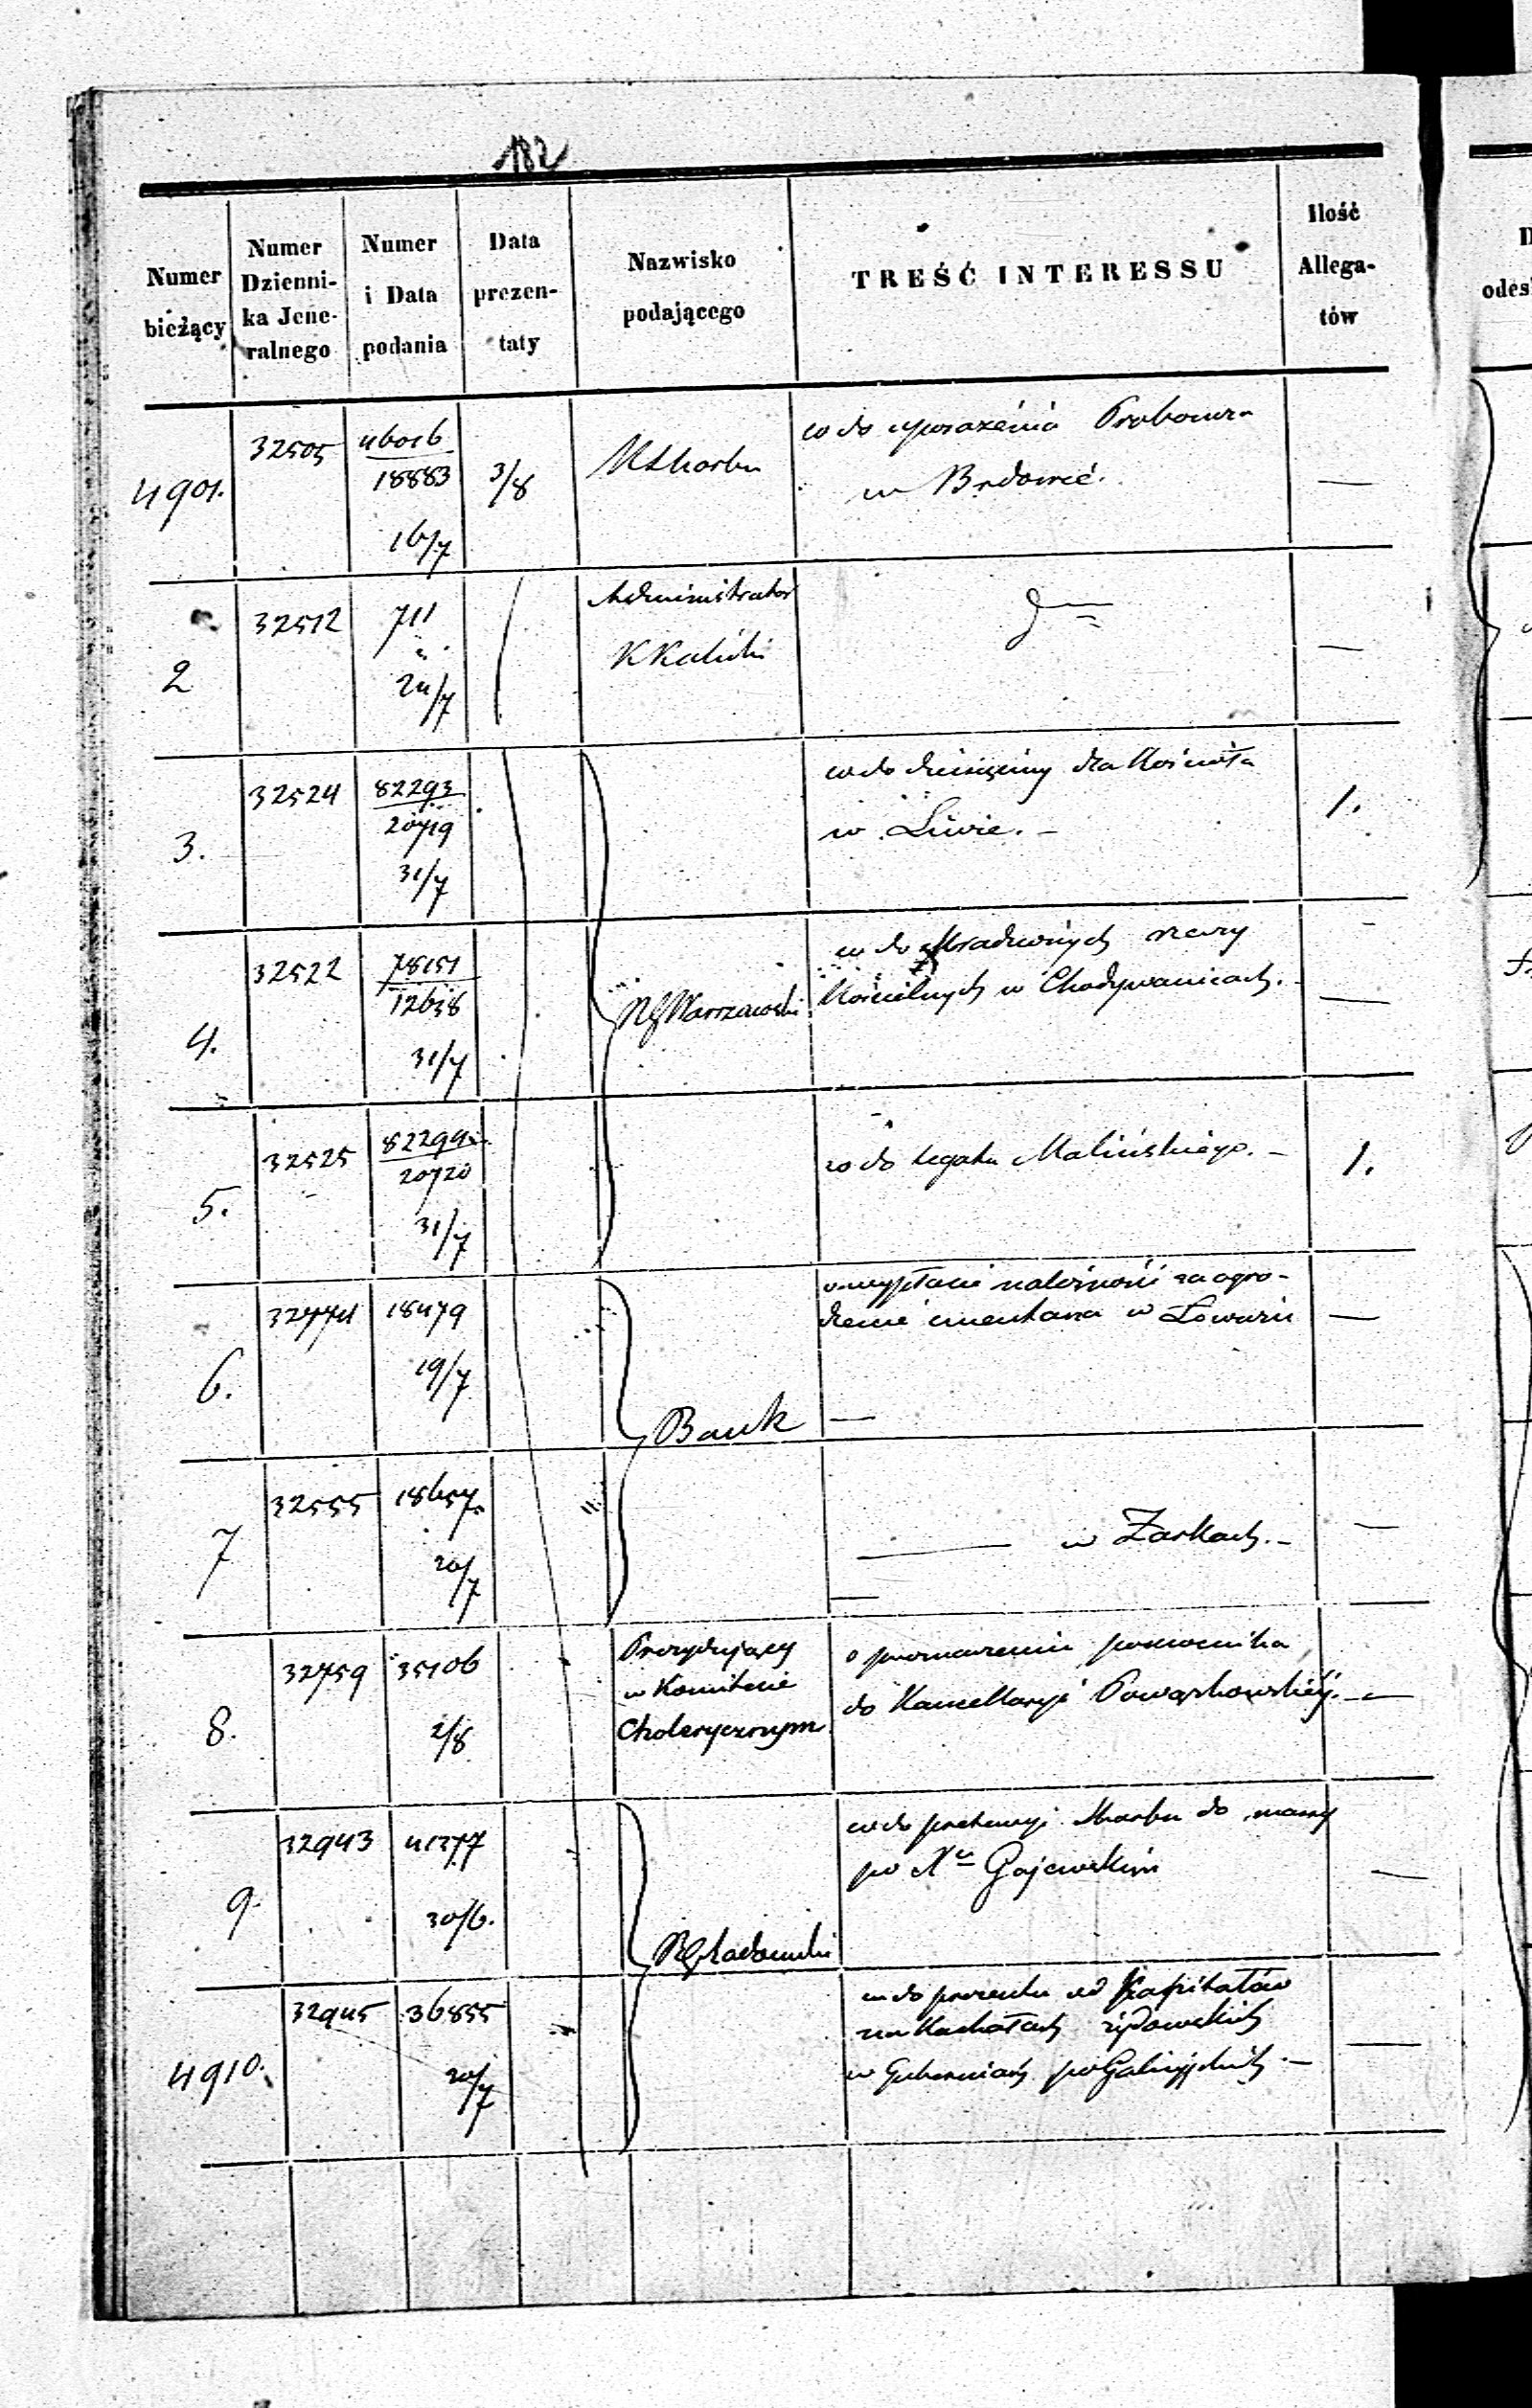 182
Numer bieżący
Numer Dzienni-
ka Jene-
ralnego
Numer i Data podania
Data prezen-
taty
Nazwisko podającego
TREŚĆ INTERESSU
Ilość Allega-
tów
4901.
32505
46016
18883
16/7
3/8
KSkarbu
co do uposażenia Probostwa
w Brdowie.
—
2
32512
711
24/7
Administrator
KKaliski
—
3.
32524
82293
20719
31/7
co do dziesięciny dla Kościoła
w Liwie. –
1.
4.
32522
78151
12638
31/7
RGWarszawski
co do skradzionych rzeczy
Kościelnych w Chodywanicach.
—
5.
32525
82299
20720
31/7
co do legatu Malińskiego. –
1.
6.
32774
18479
19/7
Bank
o wypłacie należności za ogro-
dzenie cmentarza w Łowiczu
—
7
32555
18657.
20/7
——— w Żarkach. –
—
8.
32759
35106
2/8
Prezydujący
w Komitecie
Cholerycznym
o pomocnika
do Kancellaryi Powązkowskiéj. –
—
9.
32943
41377
30/6.
RGRadomski
co do pretensyi Skarbu do massy
po Xu Gajewskim
—
4910.
32945
36855
20/7
co do procentu od Kapitałów
na Kachałach żydowskich
w Guberniach poGalicyjskich. –
—
odes